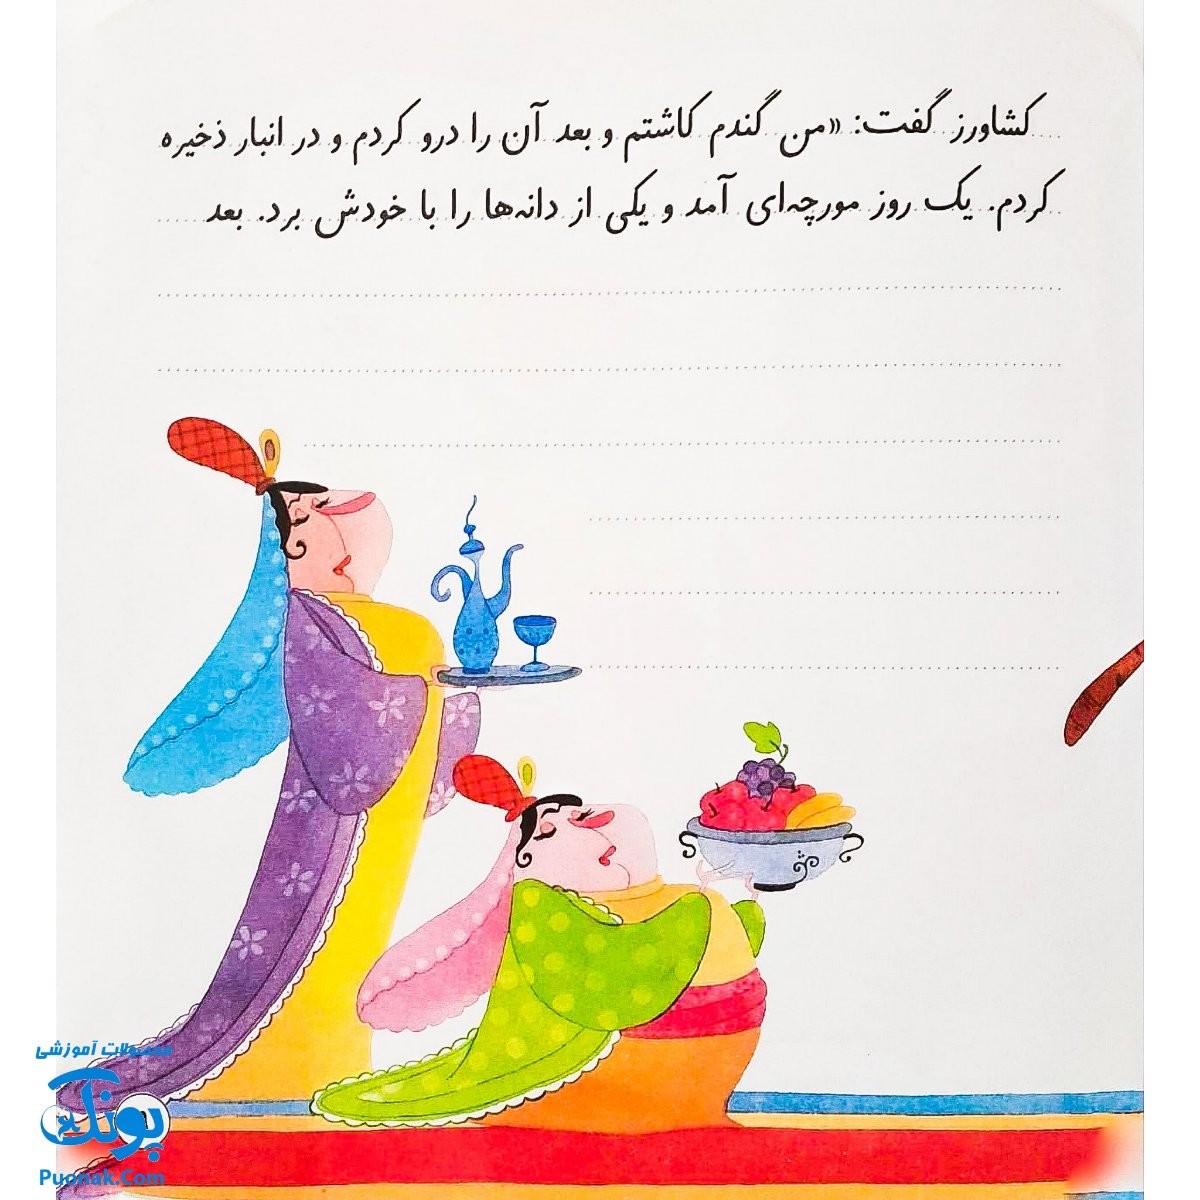 کشاورز گفت: «من گندم کاشتم و بعد آن را درو کردم و در انبار ذخیره
کردم. یک روز مورچه‌ای آمد و یکی از دانه‌ها را با خودش برد. بعد
محصولات آموزشی
پونک
Puonak.Com